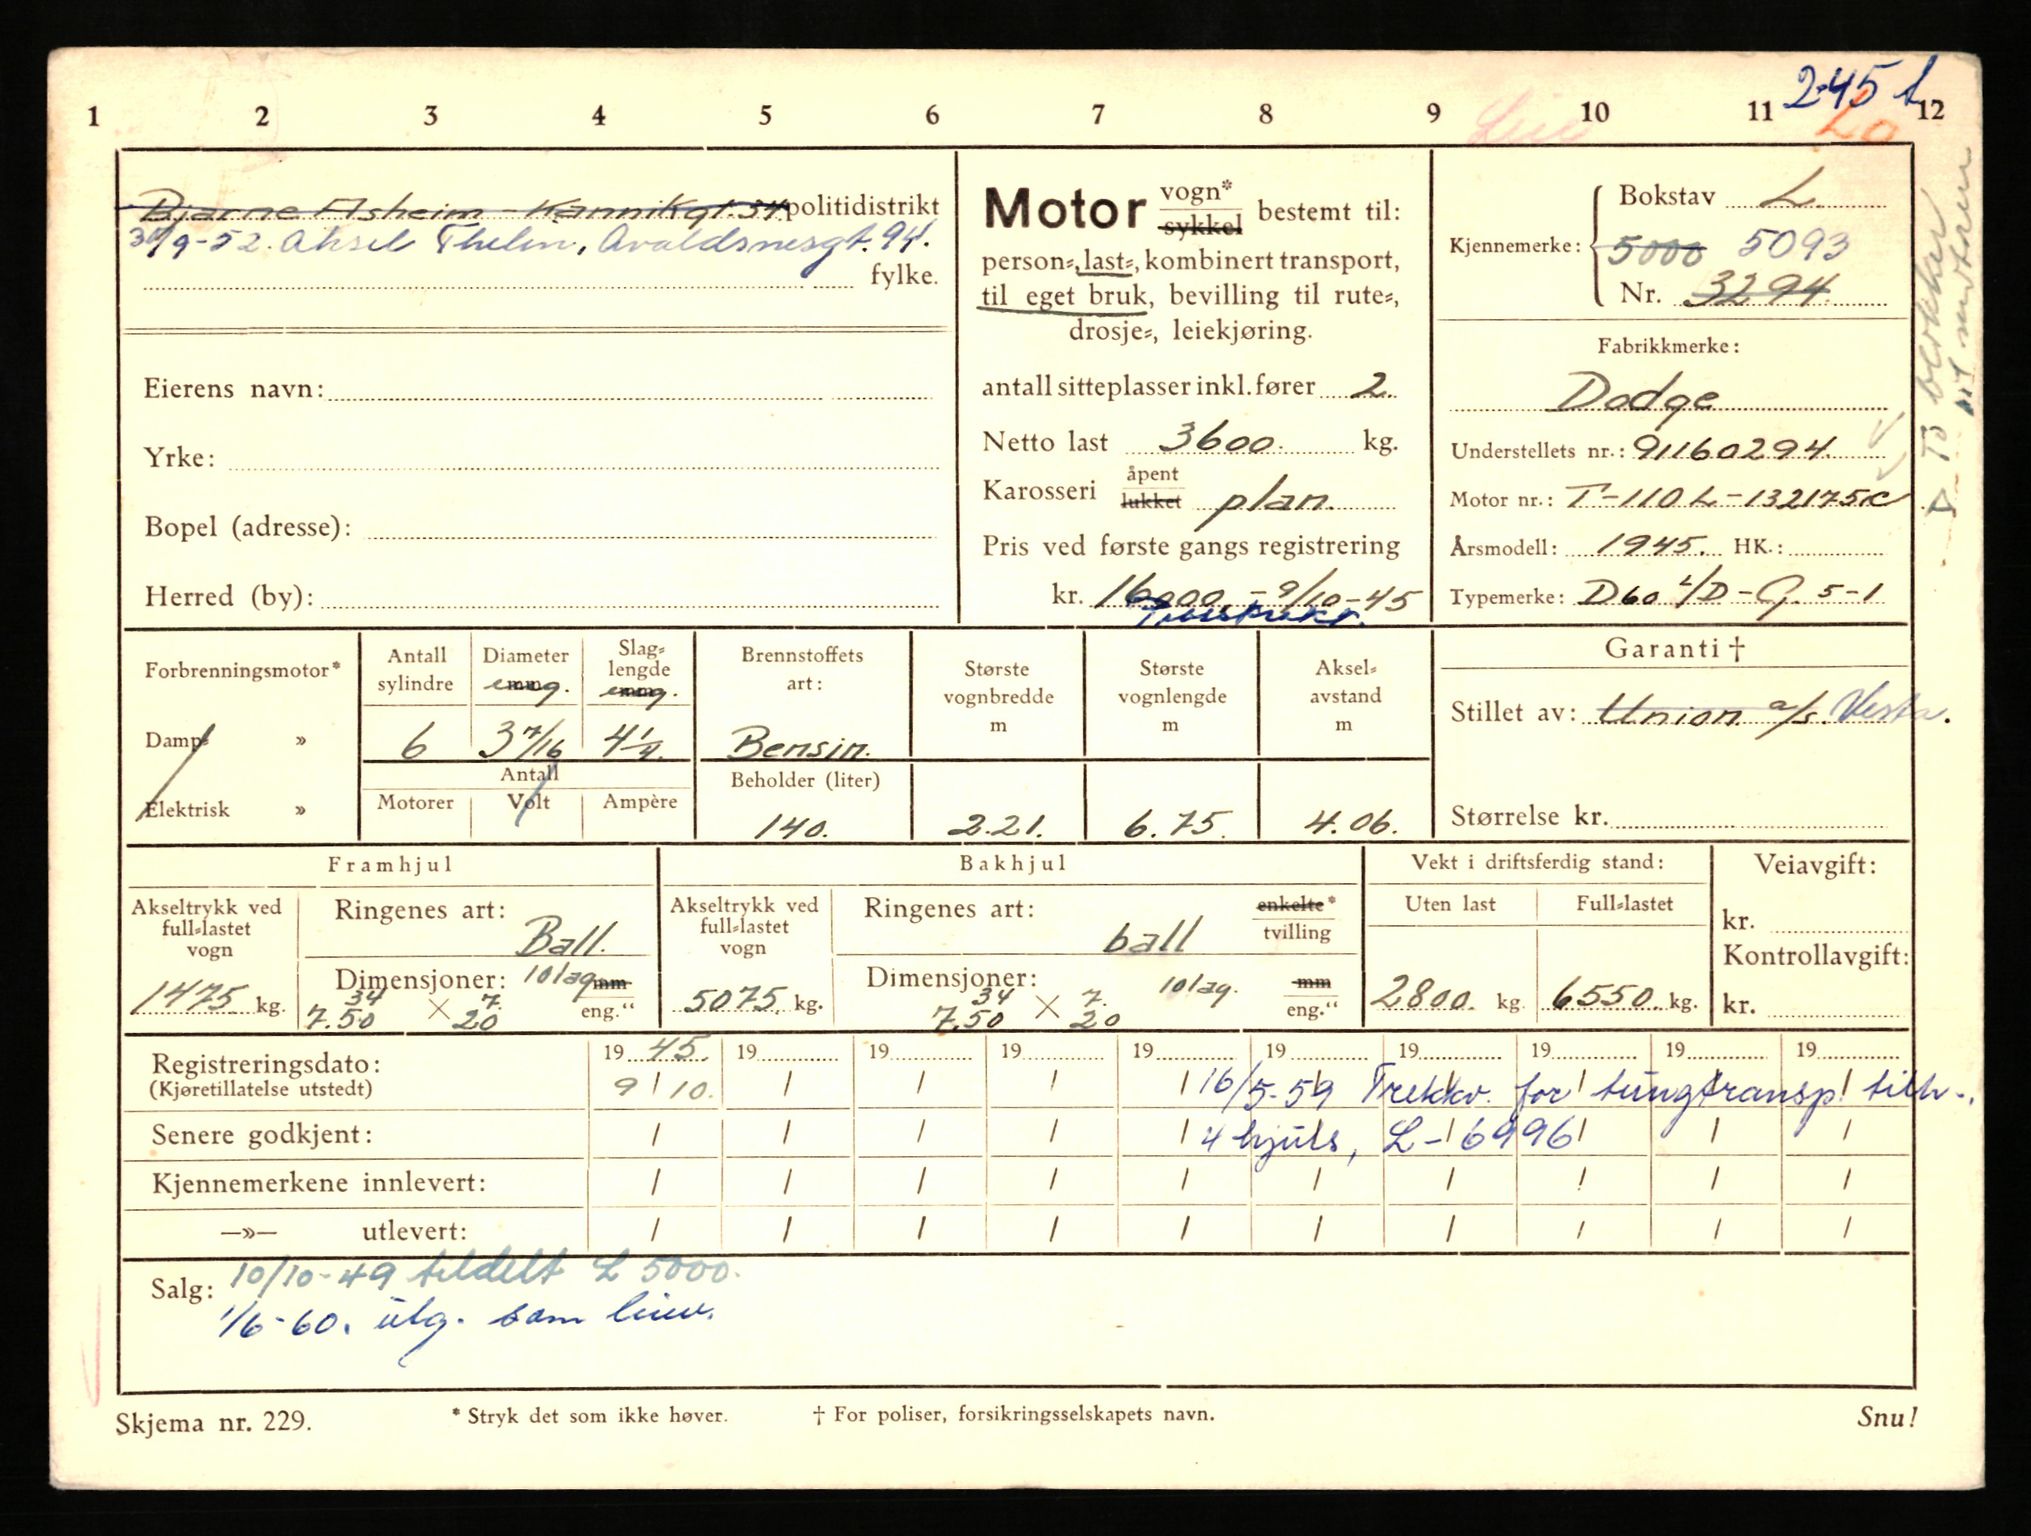 1 2 3 4 5 6 7 8 9 10 11 12
2-45 t
Bjarne Asheim - Kannikgt. 34 politidistrikt
30/9-52. Aksel Thelin, Avaldsnesgt. 94.
fylke.
Eierens navn:
Yrke:
Bopel (adresse):
Herred (by):
Motor vogn* sykkel bestemt til:
person-, last-, kombinert transport,
til eget bruk, bevilling til rute-,
drosje-, leiekjøring.
antall sitteplasser inkl. fører 2.
Netto last 3600. kg.
Karosseri åpent lukket plan.
Pris ved første gangs registrering
kr. 16000,- 9/10-45
Kjennemerke:
Bokstav L.
5000 5093
Nr. 3294.
Fabrikkmerke:
Dodge
Understellets nr.: 91160294.
Motor nr.: T-110L-132175C
Årsmodell: 1945. HK.:
Typemerke: D60 L/D - G. 5-1
Forbrenningsmotor*
Damp- »
Elektrisk »
Antall sylindre
6
Diameter mm eng.
3 7/16
Slag-lengde mm eng.
4 1/4.
Antall
Motorer Volt Ampère
Brennstoffets art:
Bensin.
Beholder (liter)
140.
Største vognbredde m
2.21.
Største vognlengde m
6.75.
Aksel-avstand m
4.06.
Garanti †
Stillet av: Union a/s. Vesta.
Størrelse kr.
Framhjul
Akseltrykk ved full-lastet vogn
1475 kg.
Ringenes art: Ball.
Dimensjoner: 10lag mm eng."
34 × 7.
7.50 20
Bakhjul
Akseltrykk ved full-lastet vogn
5075. kg.
Ringenes art: ball
enkelte* tvilling
Dimensjoner: 10lag. mm eng."
34 × 7.
7.50 20
Vekt i driftsferdig stand:
Uten last Full-lastet
2800. kg. 6550. kg.
Veiavgift:
kr.
Kontrollavgift:
kr.
Registreringsdato: 19 45. 19 19 19 19 19 19 19 19 19
(Kjøretillatelse utstedt) 9 / 10. 16/5-59 Trekkv. for tungtransp. tilh.
Senere godkjent: 4 hjuls, L-6996
Kjennemerkene innlevert:
—»— utlevert:
Salg: 10/10-49 tildelt L 5000.
1/6-60. utg. som
Skjema nr. 229.
* Stryk det som ikke høver.
† For poliser, forsikringsselskapets navn.
Snu!